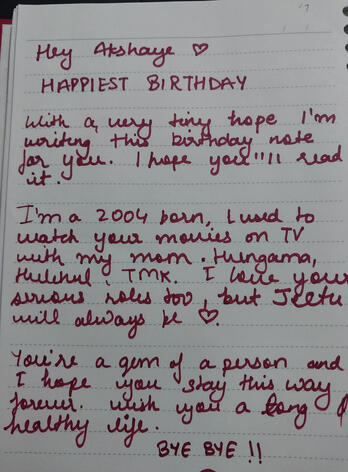 Hey Akshaye ♡
HAPPIEST BIRTHDAY
With a very tiny hope I'm
writing this birthday note
for you. I hope you'll read
it.
I'm a 2004 born, I used to
watch your movies on TV
with my mom. Hungama,
Hulchul, TMK. I love your
serious roles too, but Jeetu
will always be ♡.
You're a gem of a person and
I hope you stay this way
forever. Wish you a long &
healthy life.
BYE BYE !!